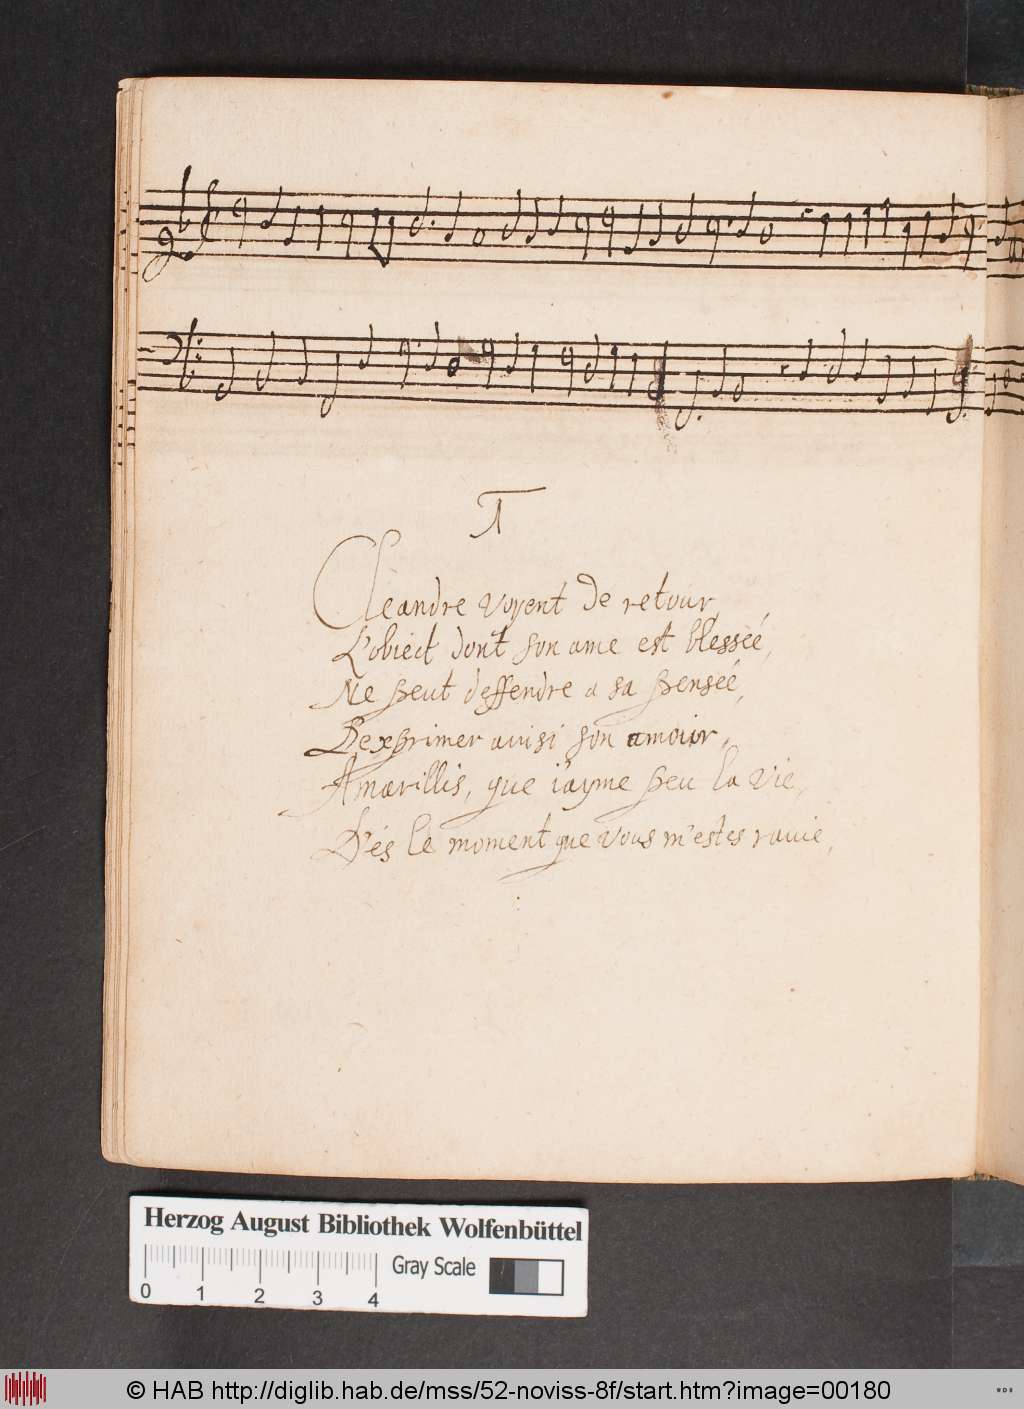 1
Cleandre voyent de retour,
L'obiect dont son ame est blessée,
Ne peut deffendre a sa pensée,
D'exprimer ainsi son amour,
Amarillis, que i'ayme peu la vie,
D'és le moment que vous m'estes rauie,
Herzog August Bibliothek Wolfenbüttel
Gray Scale
0 1 2 3 4
© HAB http://diglib.hab.de/mss/52-noviss-8f/start.htm?image=00180